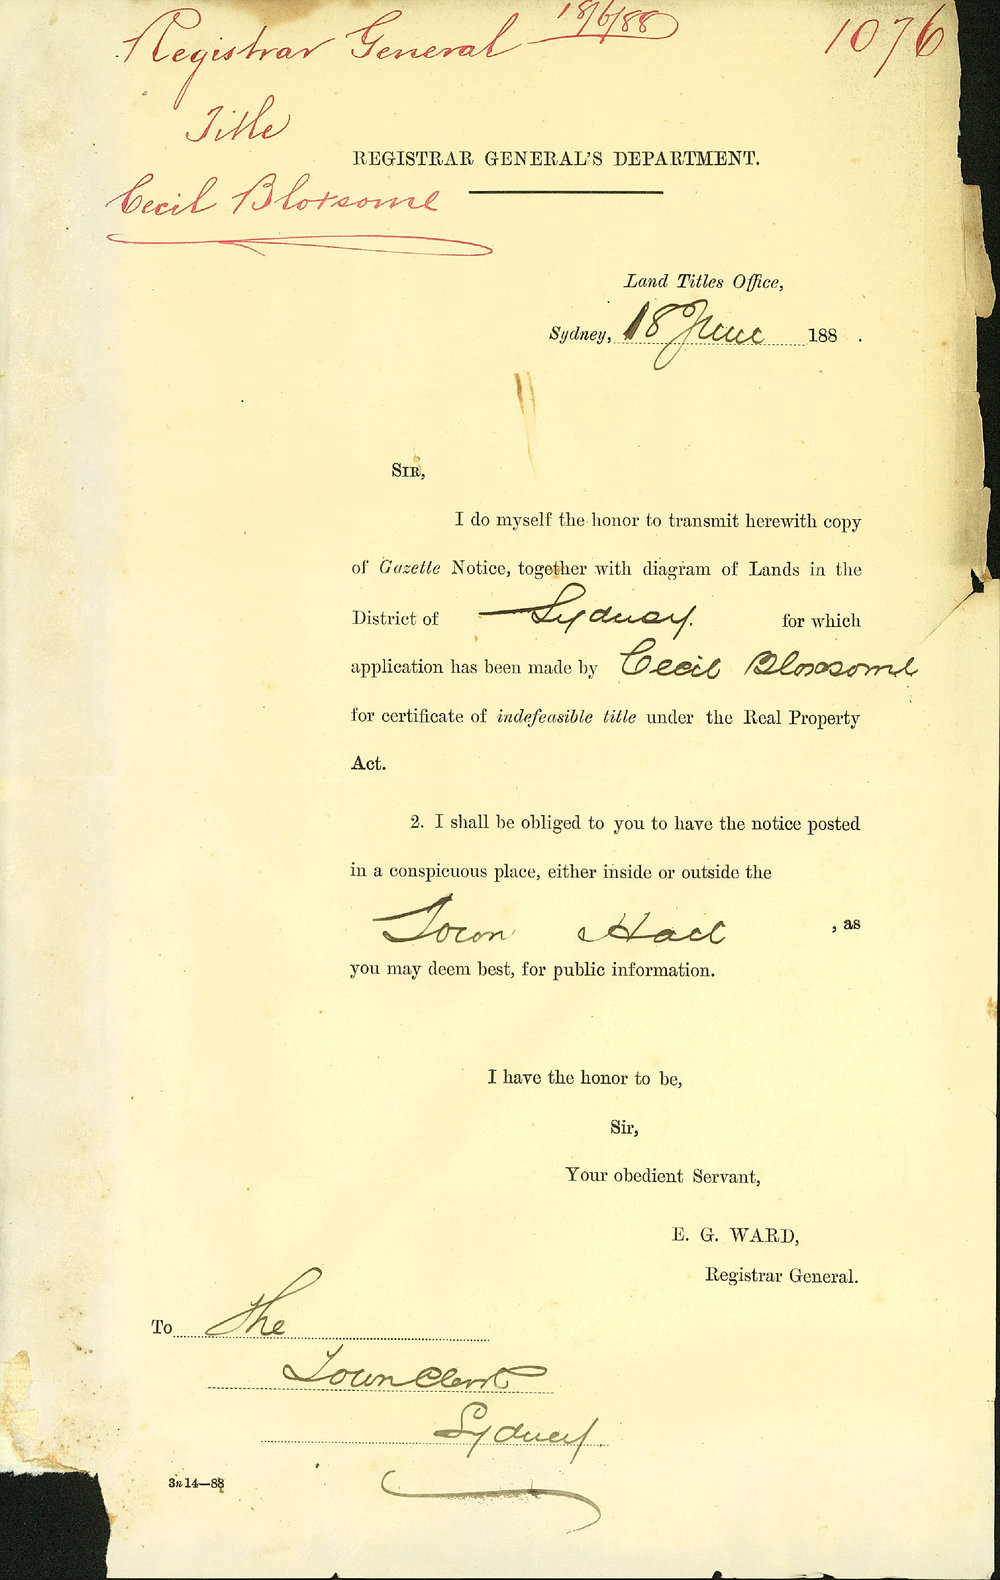 Registrar General 18/6/88
1076
Title
Cecil Bloxsome
REGISTRAR GENERAL'S DEPARTMENT.
Land Titles Office,
Sydney, 18 June 188 .
SIR,
I do myself the honor to transmit herewith copy
of Gazette Notice, together with diagram of Lands in the
District of Sydney. for which
application has been made by Cecil Bloxsome
for certificate of indefeasible title under the Real Property
Act.
2. I shall be obliged to you to have the notice posted
in a conspicuous place, either inside or outside the
Town Hall , as
you may deem best, for public information.
I have the honor to be,
Sir,
Your obedient Servant,
E. G. WARD,
Registrar General.
To The
Town Clerk
Sydney.
3n 14—88